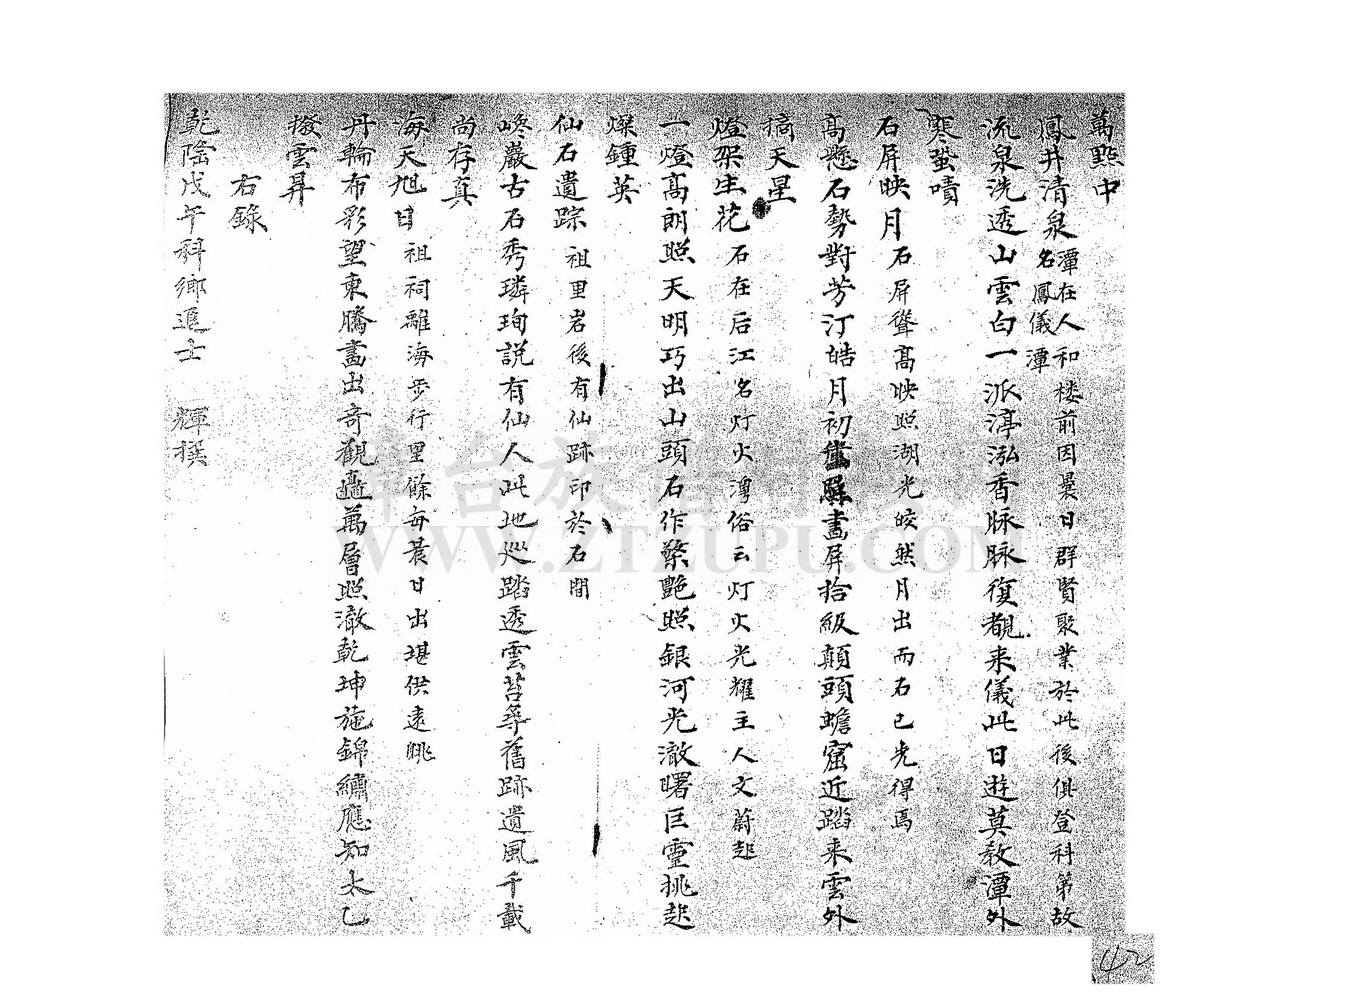 萬點中
鳳井清泉 潭在人和楼前因曩日群賢聚業於此後俱登科第故
名鳳儀潭
流泉洗透山雲白一派渟泓香脉脉復覩来儀此日遊莫教潭外
寒蛩嘖
石屏映月 石屏聳髙映照湖光皎然月出而石已光得焉
髙懸石勢對芳汀皓月初畫屏拾級顛頭蟾窟近踏来雲外
摘天星
燈架生花 石在后江名灯火潭俗云灯火光耀主人文蔚起
一燈髙朗照天明巧出山頭石作檠艷照銀河光澈曙巨靈挑起
燦鍾英
仙石遺踪 祖里岩後有仙跡印於石間
峰巖古石秀璘珣説有仙人此地巡踏透雲苔尋舊跡遺風千載
尚存真
海天旭日 祖祠離海步行里餘每晨日出堪供遠眺
丹輪布彩望東騰畫出奇觀矗萬層照澈乾坤施錦繡應知太乙
撥雲昇
右錄
乾隆戊午科鄉進士 輝撰
章台族譜對接网
WWW.ZTZUPU.COM
42